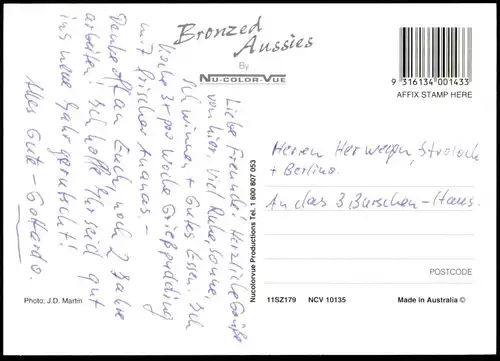 Bronzed
Aussies
By
NU-COLOR-VUE
9 316134 001433
AFFIX STAMP HERE
Liebe Freunde! Herzliche Grüße
von hier, viel Ruhe, Sonne,
Schwimmen + Gutes Essen. Ich
koche 3x pro Woche Grießpudding
mit frischer Ananas. –
Denke oft an Euch, noch 2 Jahre
arbeiten! Ich hoffe Ihr seid gut
ins neue Jahr gerutscht!
Alles Gute – Gottardo.
Herren Herwegen,
+ Berlino.
An das 3 Burschen-Haus.
Nucolorvue Productions Tel. 1 800 807 053
POSTCODE
Photo: J.D. Martin
11SZ179 NCV 10135 Made in Australia ©